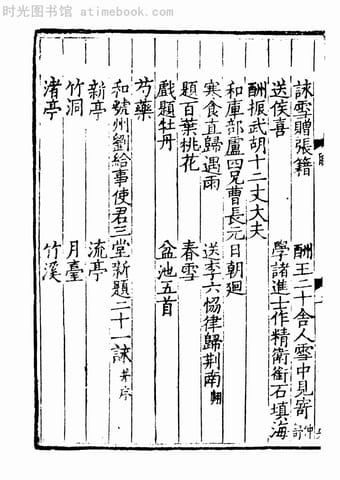 时光图书馆 - atimebook.com
詠雪贈張籍　酬王二十舍人雪中見寄
送侯喜　學諸進士作精衛銜石填海
酬振武胡十二丈大夫
和庫部盧四兄曹長元日朝廻
寒食直歸遇雨　送李六協律歸荆南翺
題百葉桃花　春雪
戲題牡丹　盆池五首
芍藥
和虢州劉給事使君三堂新題二十一詠并序
新亭　流亭
竹洞　月臺
渚亭　竹溪